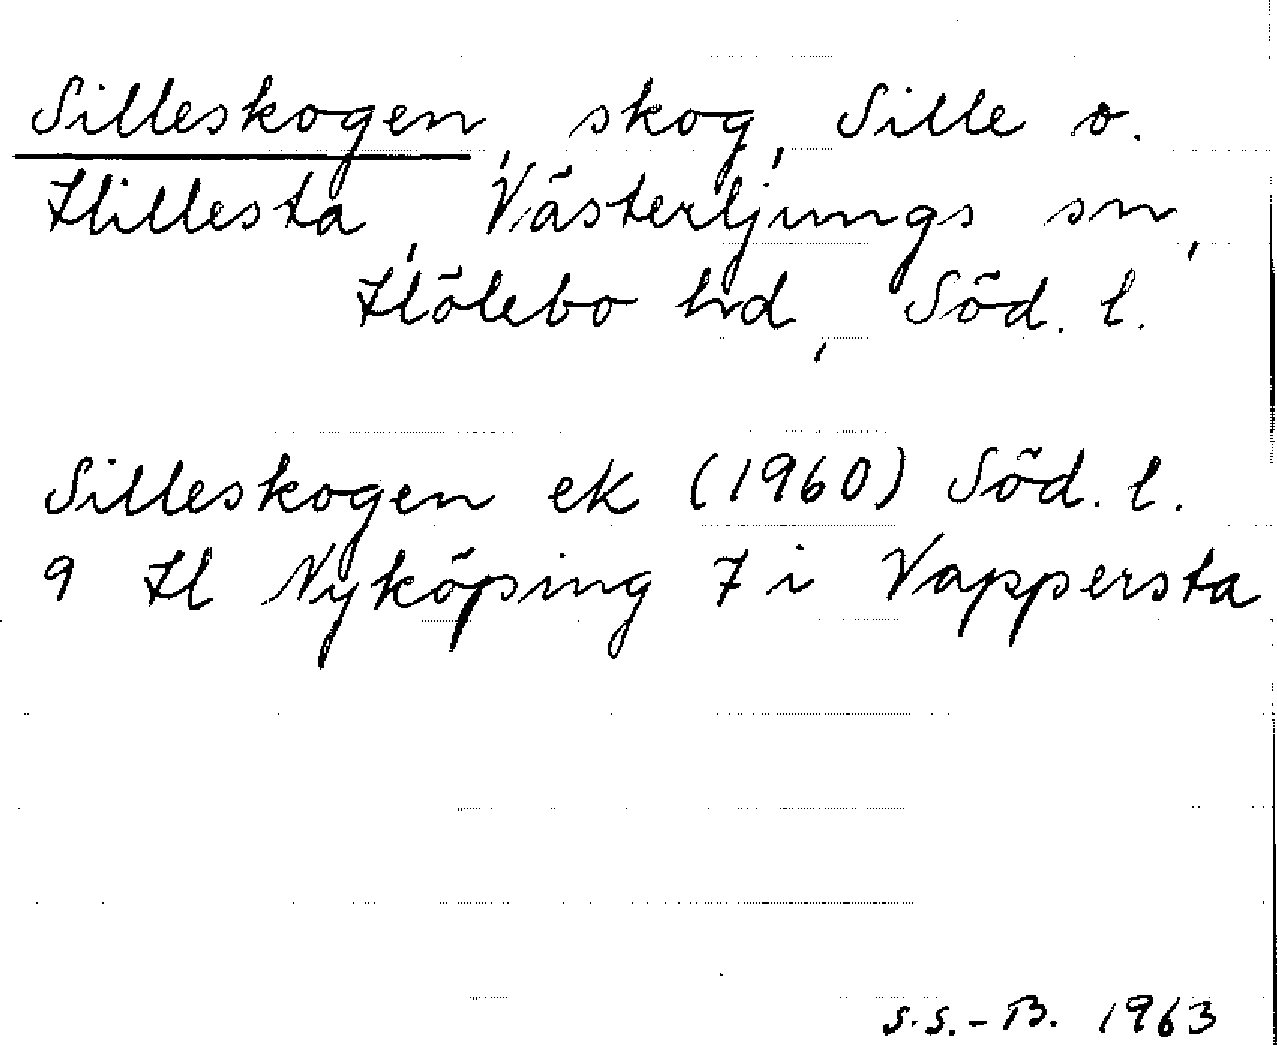 Silleskogen, skog, Sille o.
Hillesta, Västerljungs sn,
Hölebo hd, Söd. l.
Silleskogen ek (1960) Söd. l.
9 H Nyköping 7 i Vappersta
S.S.-B. 1963